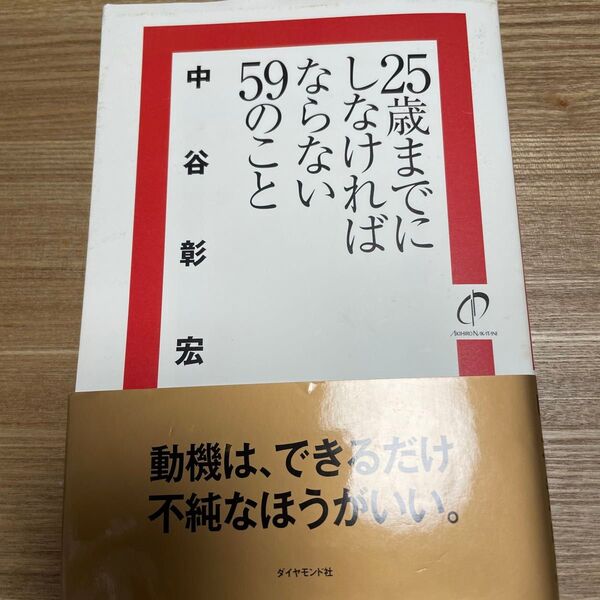 25歳までに
しなければ
ならない
59のこと
中谷彰宏
AKIHIRO NAKATANI
動機は、できるだけ
不純なほうがいい。
ダイヤモンド社